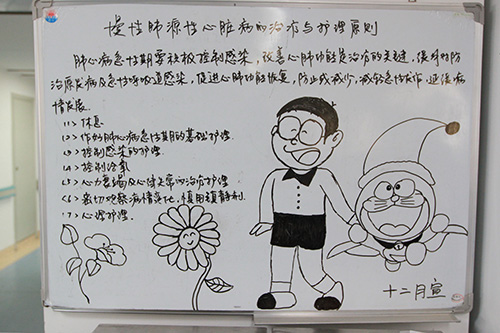 慢性肺源性心脏病的治疗与护理原则
肺心病急性期要积极控制感染，改善心肺功能是治疗的关键，缓解时防
治原发病及急性呼吸道感染，促进心肺功能恢复，防止或减少，减轻急性发作，延缓病
情发展。
(1) 休息
(2) 作好肺心病急性期的基础护理.
(3) 控制感染的护理.
(4) 控制冷氧
(5) 心力衰竭及心律失常的治疗护理
(6) 密切观察病情变化，慎用镇静剂.
(7) 心理护理.
十二月宣